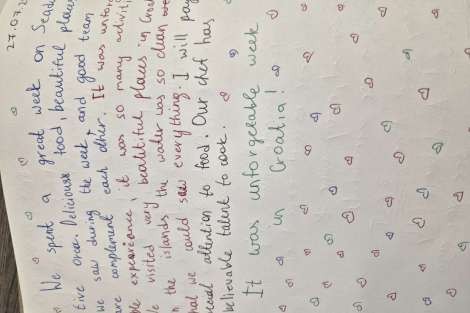 27.07.2
We spent a great week on Seada
tive crea. Delicious food, beautiful places
we saw during the week, and good team
are complement each other. It was unforg
ble experience, it was so many activiti
e visited very beautiful places in Croa
n the islands the water was so clean we
hat we could saw everything. I will pay
ecial attention to food. Our chef has
believable talent to cook.
It was unforgetable week
in Croatia!